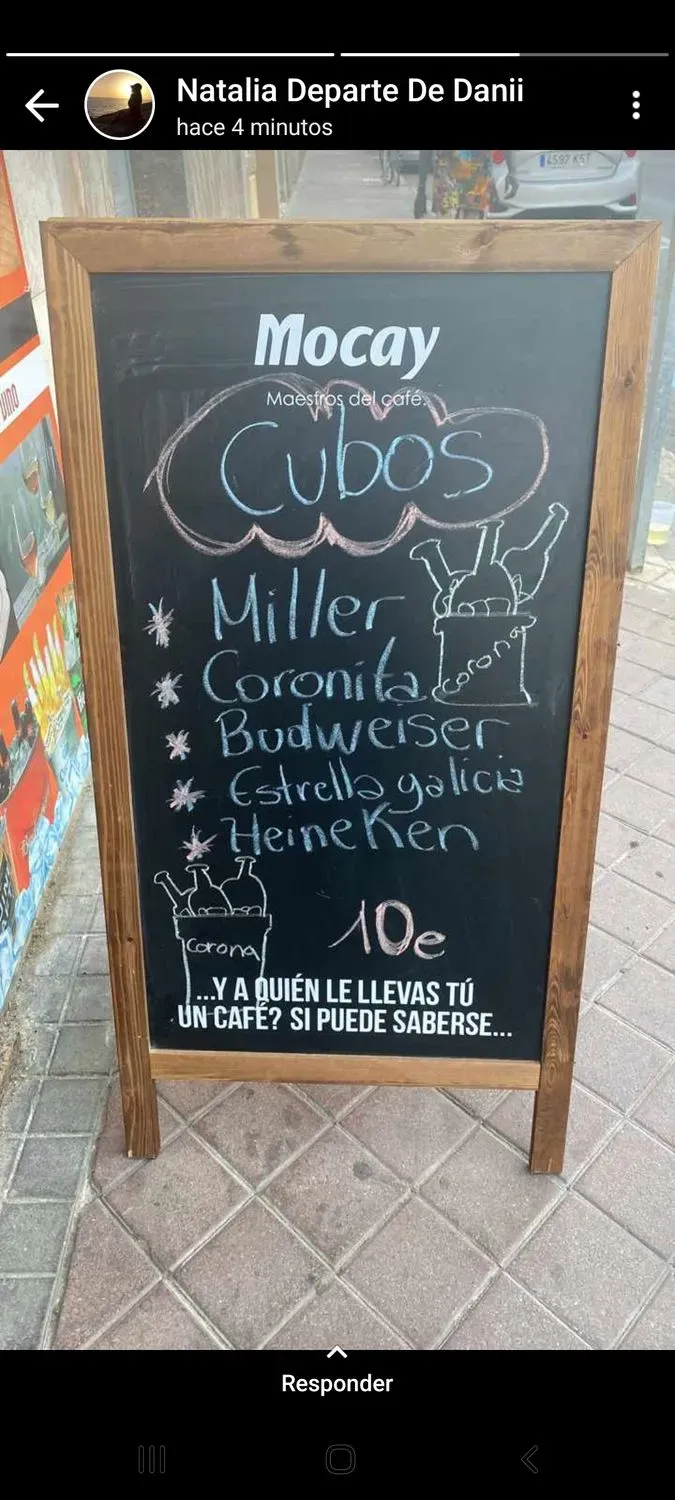 Natalia Departe De Danii
hace 4 minutos
4597 KST
Mocay
Maestros del café.
Cubos
VINO
Miller
Coronita
corona
Budweiser
Estrella galicia
Heineken
Corona
10e
...Y A QUIÉN LE LLEVAS TÚ
UN CAFÉ? SI PUEDE SABERSE...
Responder